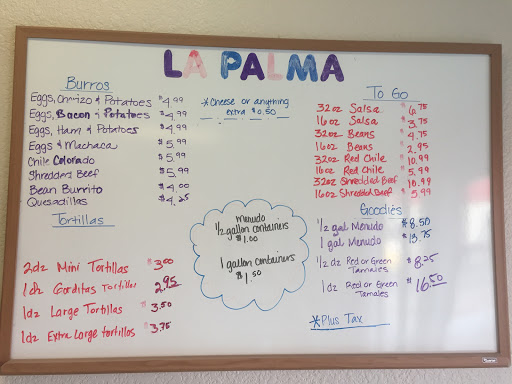 LA PALMA
Burros
Eggs, Chorizo & Potatoes $4.99
Eggs, Bacon & Potatoes $4.99
Eggs, Ham & Potatoes $4.99
Eggs & Machaca $5.99
Chile Colorado $5.99
Shredded Beef $5.99
Bean Burrito $4.00
Quesadillas $4.25
Tortillas
2dz Mini Tortillas $3.00
1dz Gorditas Tortillas 2.95
1dz Large Tortillas $3.50
1dz Extra Large tortillas $3.75
*Cheese or anything
extra $0.50
Menudo
1/2 gallon containers
$1.00
1 gallon containers
$1.50
To Go
32oz Salsa $6.75
16oz Salsa $3.75
32oz Beans $4.75
16oz Beans $2.95
32oz Red Chile $10.99
16oz Red Chile $5.99
32oz Shredded Beef $10.99
16oz Shredded Beef $5.99
Goodies
1/2 gal Menudo $8.50
1 gal Menudo $13.75
1/2 dz Red or Green $8.25
Tamales
1dz Red or Green $16.50
Tamales
*Plus Tax